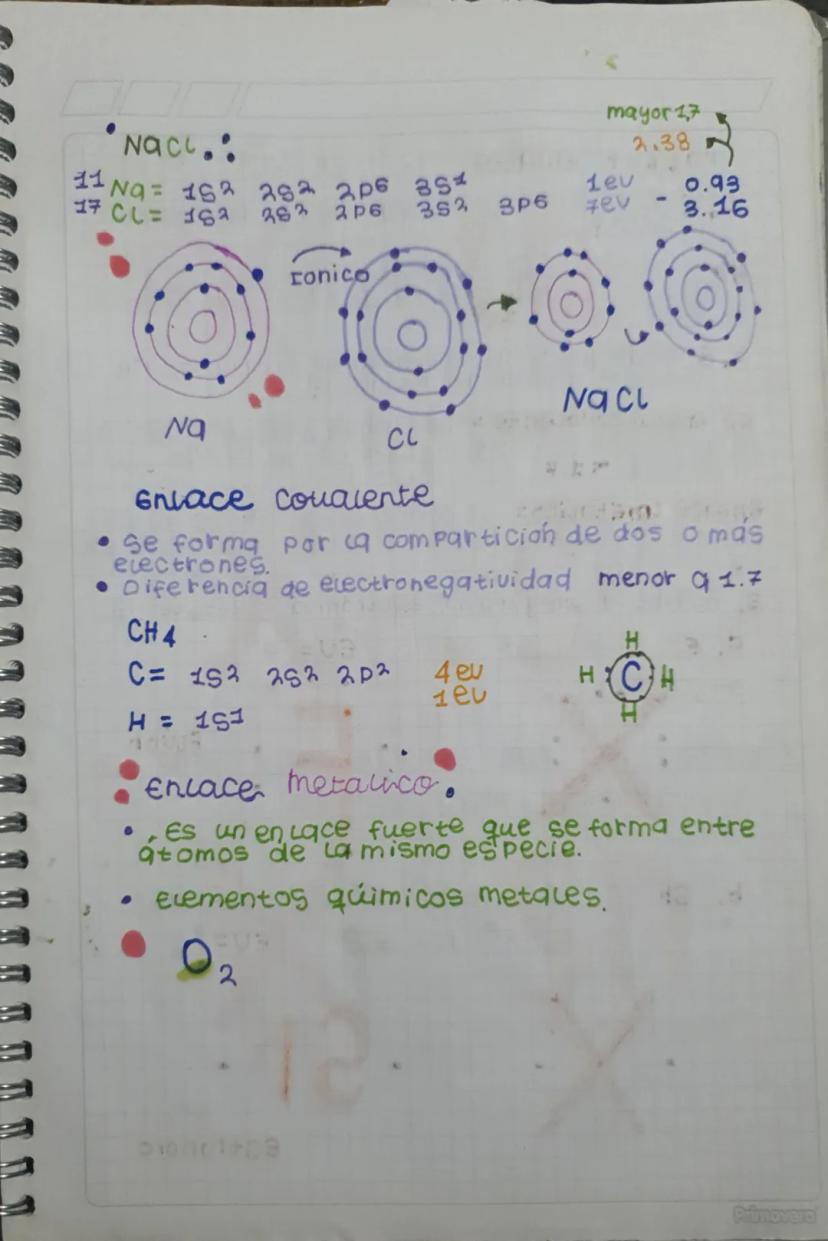 mayor 1,7
NaCl.:
2.38
11 Na = 1s2 2s2 2p6 3s1 1ev 0.93
17 Cl = 1s2 2s2 2p6 3s2 3p6 7ev - 3.16
Ionico
Na
Cl
NaCl
Enlace covalente
• Se forma por la compartición de dos o más
electrones.
• Diferencia de electronegatividad menor a 1.7
CH4
C = 1s2 2s2 2p2 4ev
1ev
H = 1s1
H
H C H
H
Enlace Metalico.
• Es un enlace fuerte que se forma entre
átomos de la mismo especie.
• Elementos químicos metales.
O2
Primavera